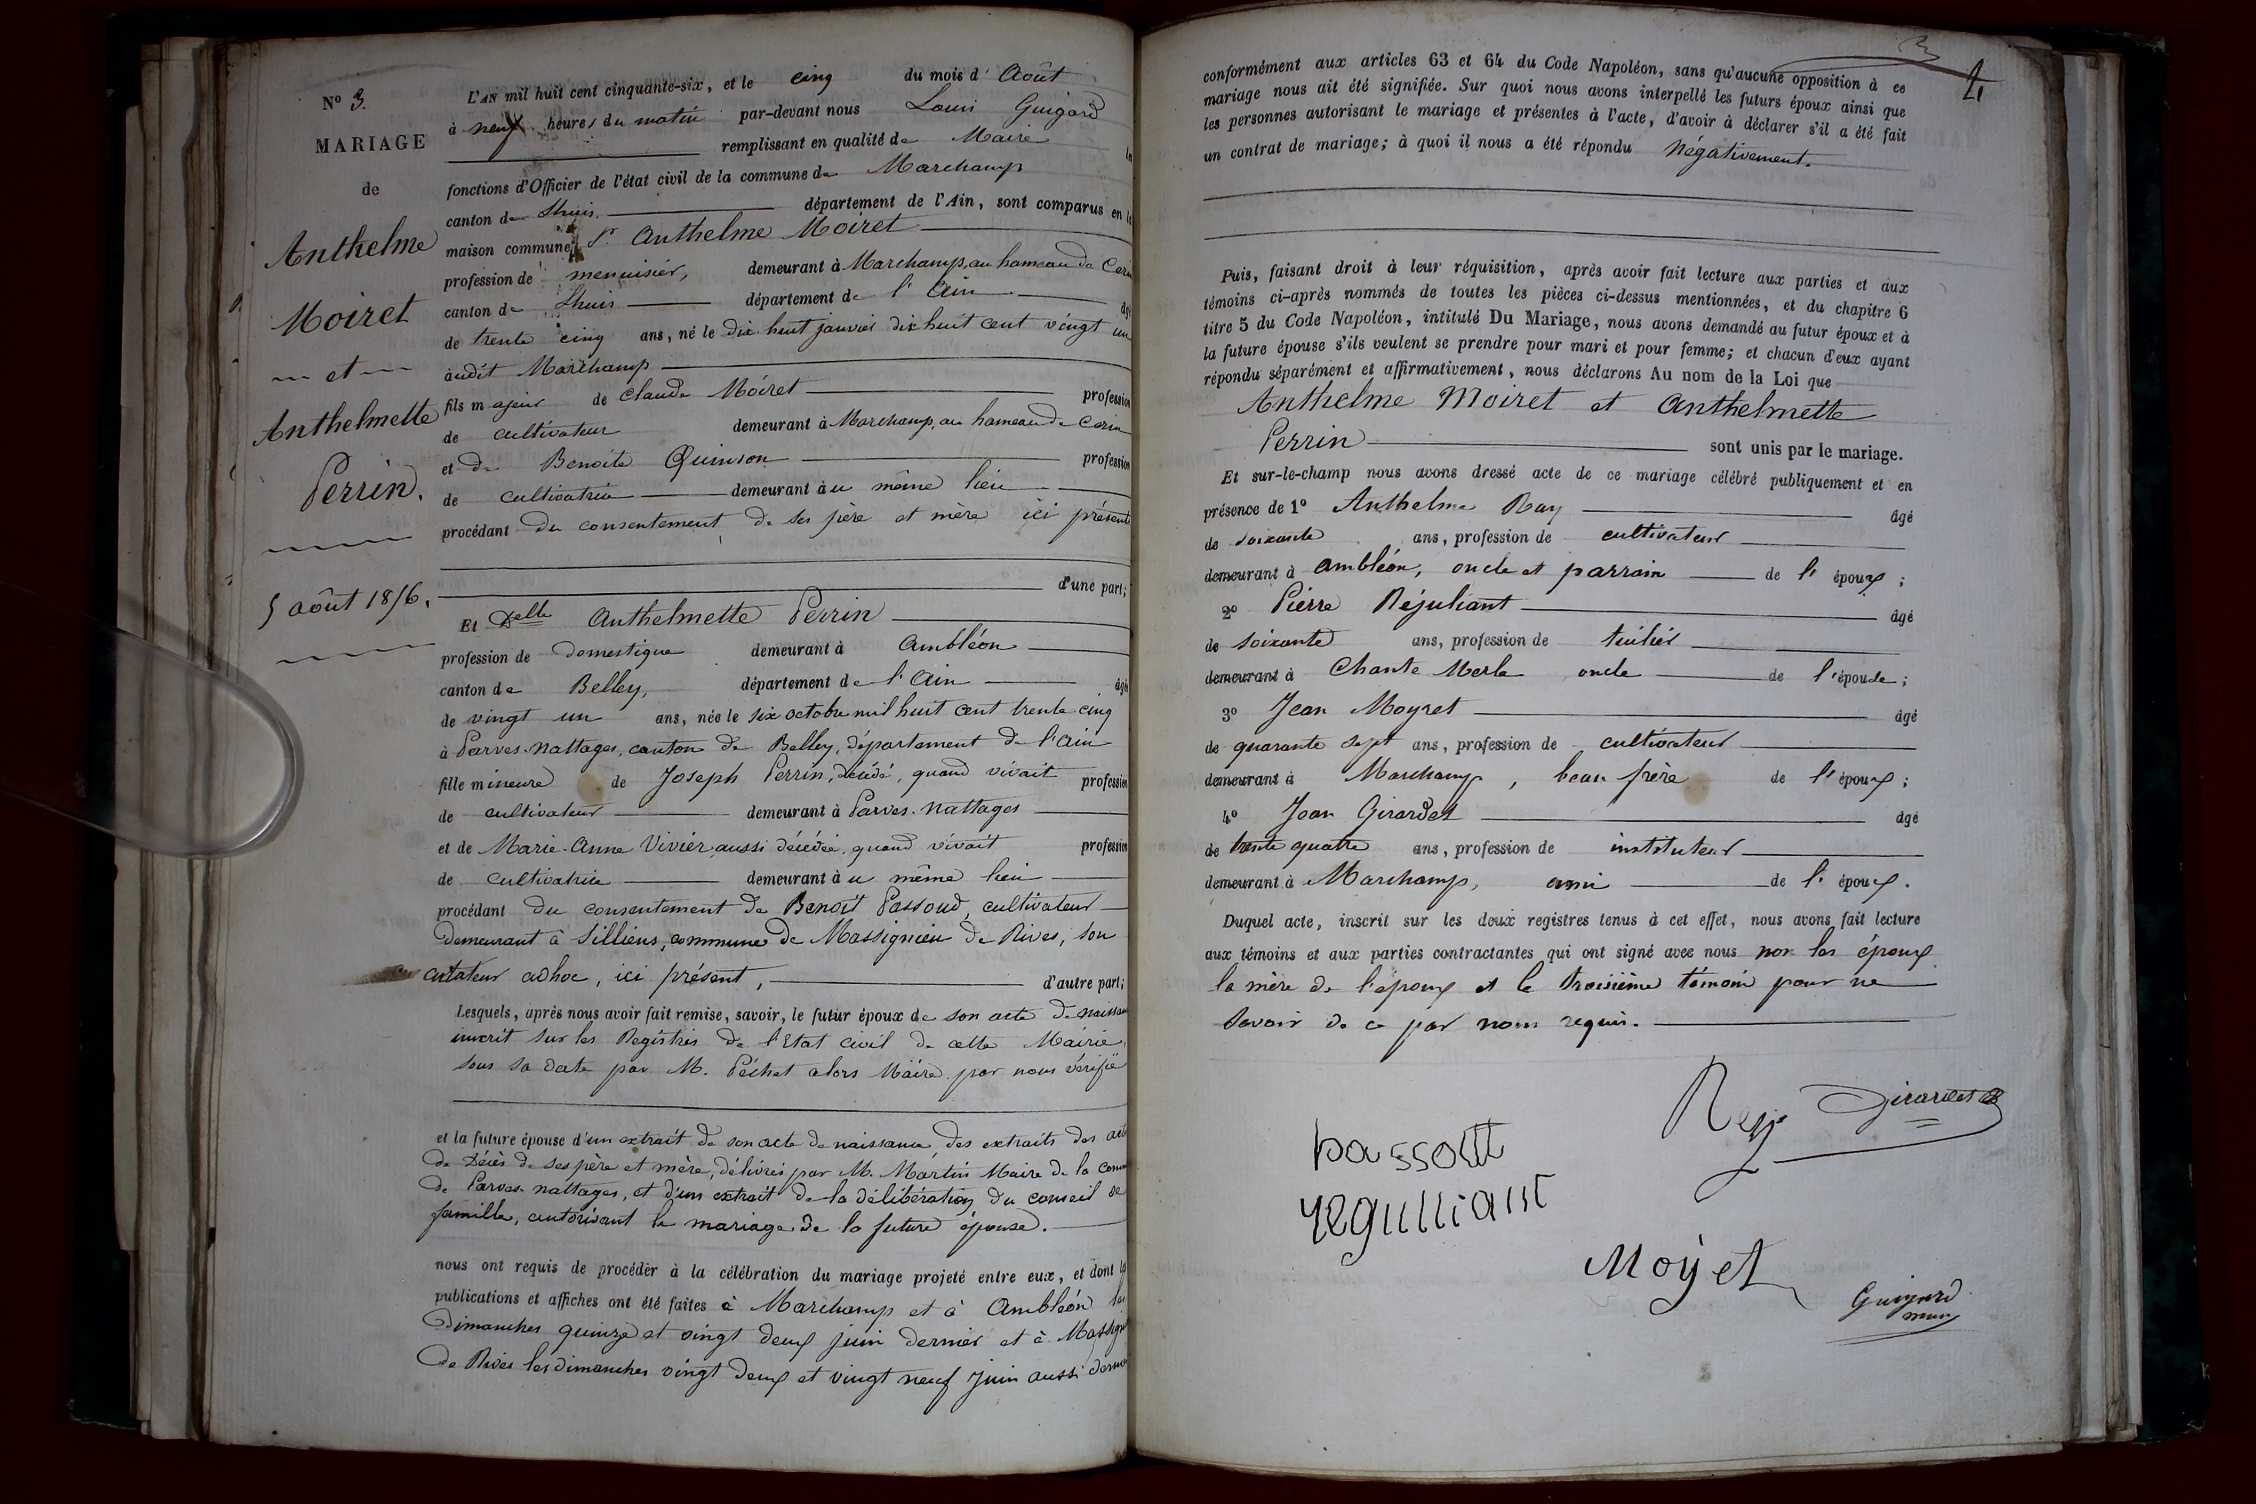 N° 3.
MARIAGE
de
Anthelme
Moiret
et
Anthelmette
Perrin.
5 août 1856.
L'AN mil huit cent cinquante-six, et le cinq du mois d' Août
à neuf heures du matin par-devant nous Louis Guigard
remplissant en qualité de Maire les
fonctions d'Officier de l'état civil de la commune de Marchamp
canton de Lhuis département de l'Ain, sont comparus en la
maison commune, Sr. Anthelme Moiret
profession de menuisier, demeurant à Marchamp, au hameau de Cerin
canton de Lhuis département de l'Ain âgé
de trente cinq ans, né le dix huit janvier dix huit cent vingt un
audit Marchamp
fils majeur de Claude Moiret profession
de cultivateur demeurant à Marchamp, au hameau de Cerin
et de Benoîte Quinson profession
de cultivatrice demeurant au même lieu
procédant du consentement de ses père et mère ici présents
d'une part;
Et Delle Anthelmette Perrin
profession de domestique demeurant à Ambléon
canton de Belley, département de l'Ain âgée
de vingt un ans, née le six octobre mil huit cent trente cinq
à Parves-Nattages, canton de Belley, département de l'Ain
fille mineure de Joseph Perrin, décédé, quand vivait profession
de cultivateur demeurant à Parves-Nattages
et de Marie-Anne Vivier aussi décédée, quand vivait profession
de cultivatrice demeurant au même lieu
procédant du consentement de Benoît Passoud, cultivateur
demeurant à Silliens, commune de Massignieu de Rives, son
curateur adhoc, ici présent, d'autre part;
Lesquels, après nous avoir fait remise, savoir, le futur époux de son acte de naissance
inscrit sur les Registres de l'Etat civil de cette Mairie,
sous sa date par M. Péchet alors Maire par nous vérifié
et la future épouse d'un extrait de son acte de naissance, des extraits des actes
de décès de ses père et mère, délivrés par M. Martin Maire de la commune
de Parves-Nattages, et d'un extrait de la délibération du conseil de
famille, autorisant le mariage de la future épouse.
nous ont requis de procéder à la célébration du mariage projeté entre eux, et dont les
publications et affiches ont été faites à Marchamp et à Ambléon les
dimanches quinze et vingt deux juin dernier et à Massignieu
de Rives les dimanches vingt deux et vingt neuf juin aussi dernier
2
conformément aux articles 63 et 64 du Code Napoléon, sans qu'aucune opposition à ce
mariage nous ait été signifiée. Sur quoi nous avons interpellé les futurs époux ainsi que
les personnes autorisant le mariage et présentes à l'acte, d'avoir à déclarer s'il a été fait
un contrat de mariage; à quoi il nous a été répondu négativement.
Puis, faisant droit à leur réquisition, après avoir fait lecture aux parties et aux
témoins ci-après nommés de toutes les pièces ci-dessus mentionnées, et du chapitre 6
titre 5 du Code Napoléon, intitulé Du Mariage, nous avons demandé au futur époux et à
la future épouse s'ils veulent se prendre pour mari et pour femme; et chacun d'eux ayant
répondu séparément et affirmativement, nous déclarons Au nom de la Loi que
Anthelme Moiret et Anthelmette
Perrin sont unis par le mariage.
Et sur-le-champ nous avons dressé acte de ce mariage célébré publiquement et en
présence de 1° Anthelme Ray âgé
de soixante ans, profession de cultivateur
demeurant à Ambléon, oncle et parrain de l'époux;
2° Pierre Réjuliant âgé
de soixante ans, profession de tuilier
demeurant à Chante Merle oncle de l'épouse;
3° Jean Moyret âgé
de quarante sept ans, profession de cultivateur
demeurant à Marchamp, beau frère de l'époux;
4° Jean Girardet âgé
de trente quatre ans, profession de instituteur
demeurant à Marchamp, ami de l'époux.
Duquel acte, inscrit sur les deux registres tenus à cet effet, nous avons fait lecture
aux témoins et aux parties contractantes qui ont signé avec nous non les époux
la mère de l'époux et le troisième témoin pour ne
savoir de ce par nous requis.
Rey
Girardet
passout
regulliant
Moÿet
Guigard
maire